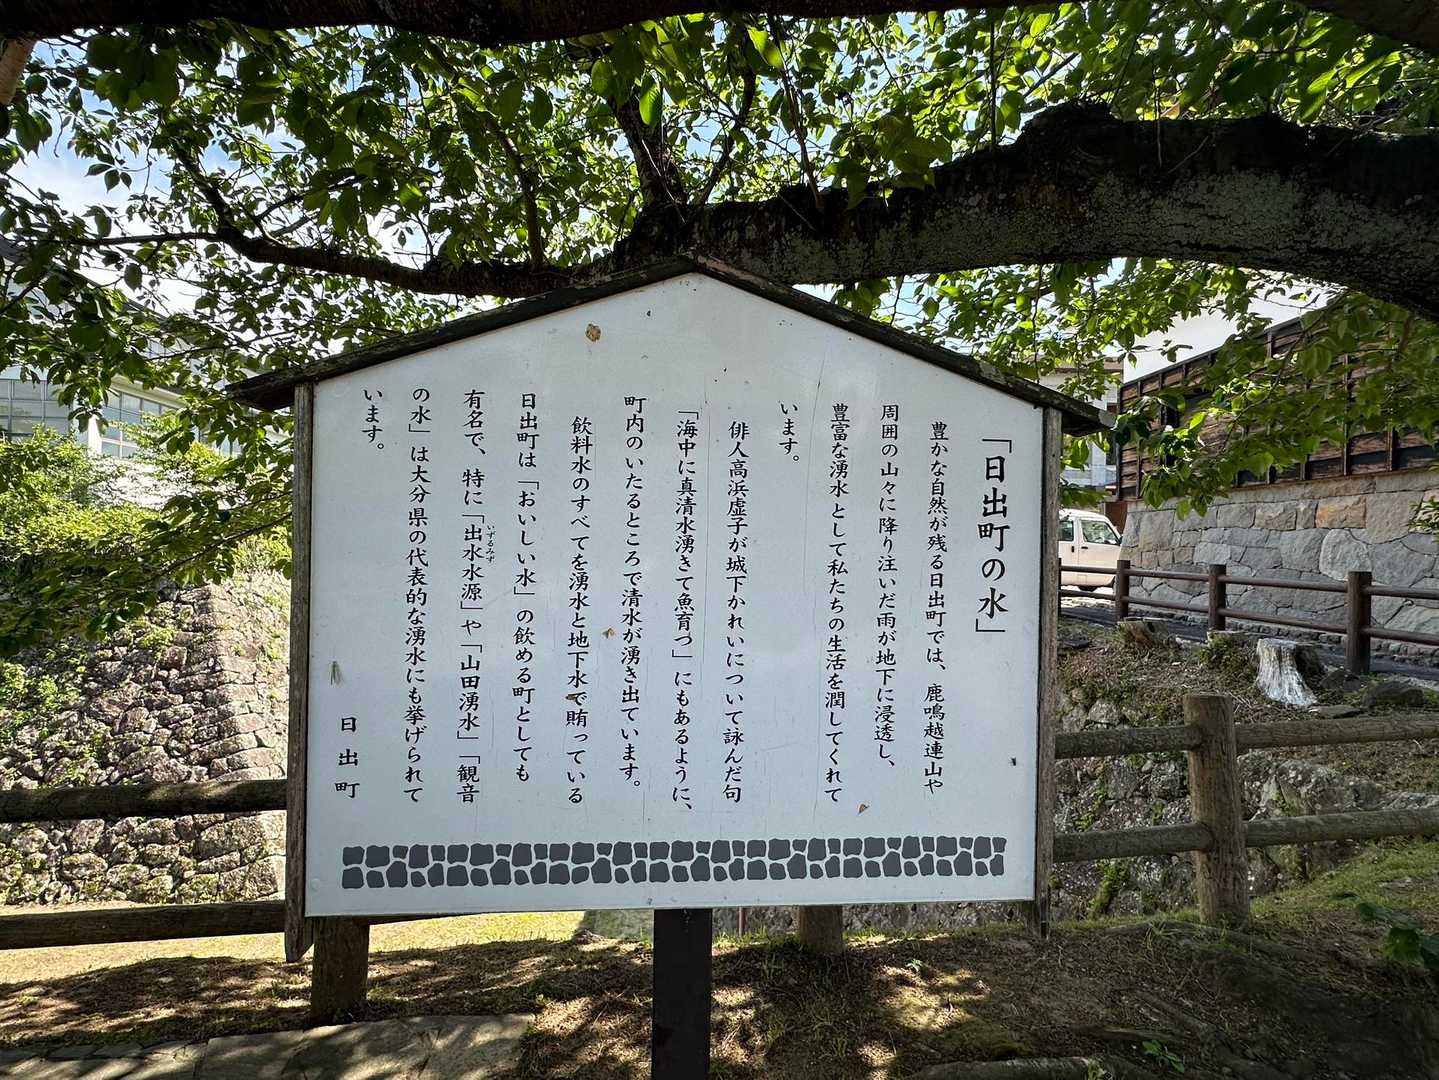 「日出町の水」
豊かな自然が残る日出町では、鹿鳴越連山や
周囲の山々に降り注いだ雨が地下に浸透し、
豊富な湧水として私たちの生活を潤してくれて
います。
俳人高浜虚子が城下かれいについて詠んだ句
「海中に真清水湧きて魚育つ」にもあるように、
町内のいたるところで清水が湧き出ています。
飲料水のすべてを湧水と地下水で賄っている
日出町は「おいしい水」の飲める町としても
有名で、特に「出水水源」や「山田湧水」「観音
いずるみず
の水」は大分県の代表的な湧水にも挙げられて
います。
日出町